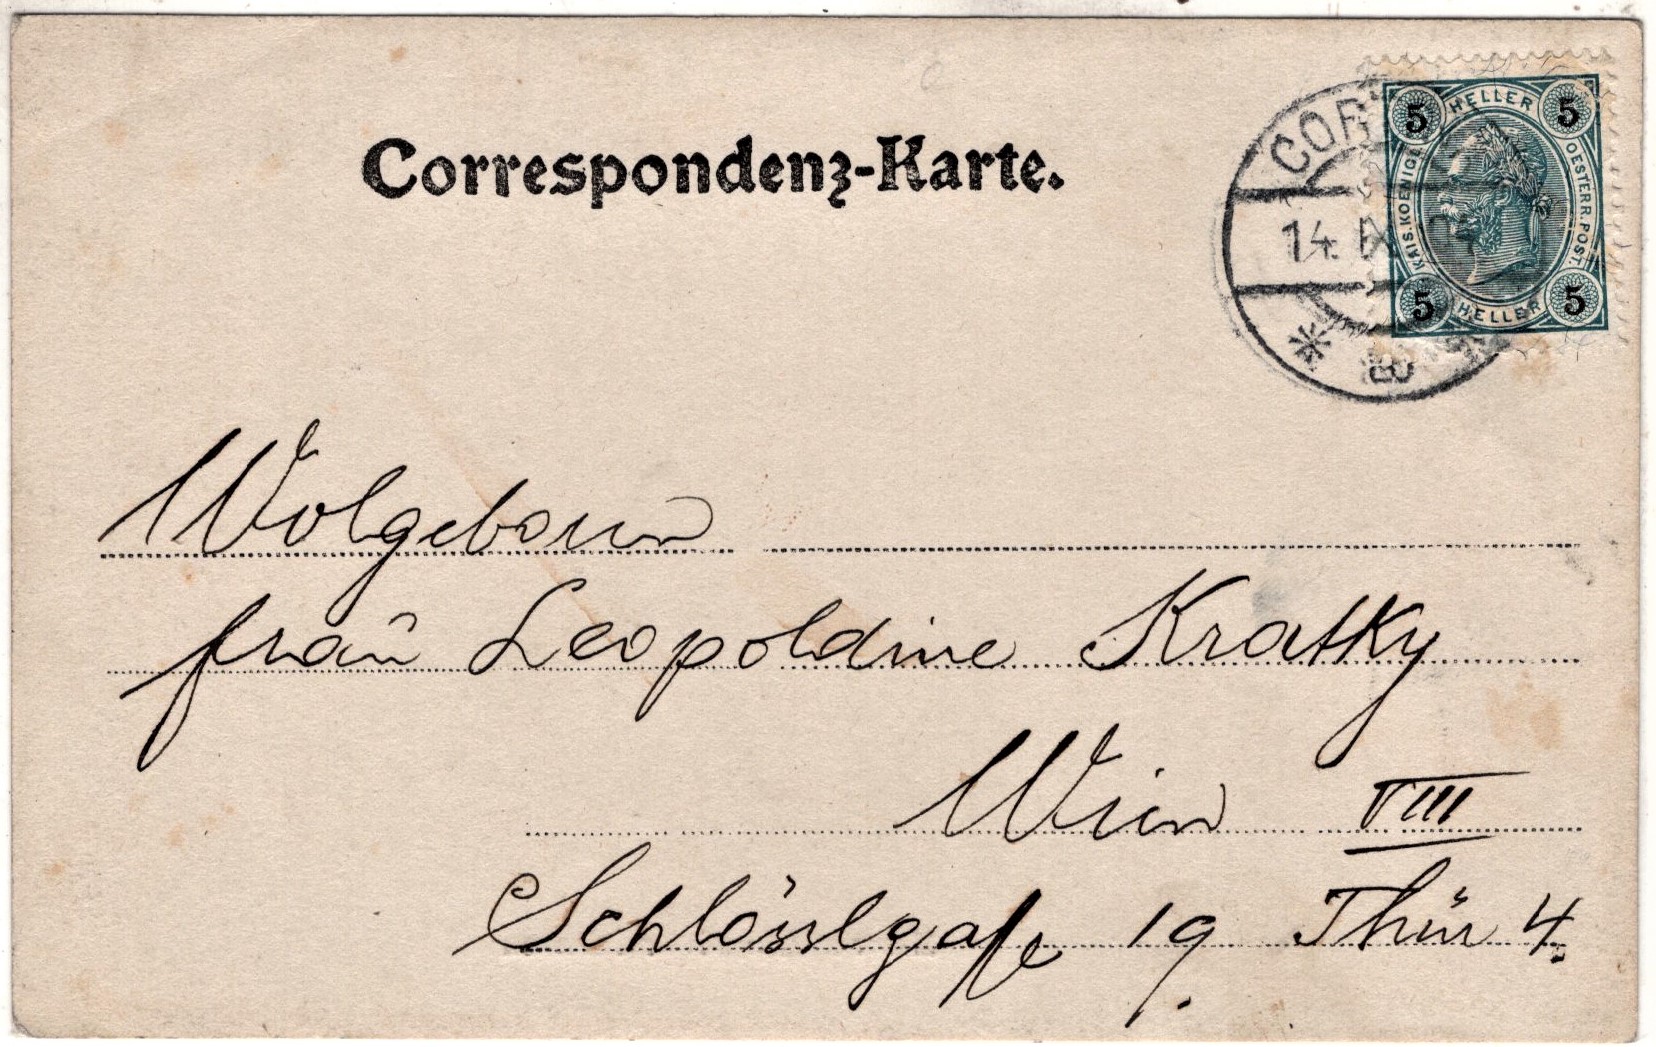 Correspondenz-Karte.
5 HELLER 5
KAIS. KOENIGL. OESTERR. POST.
5 HELLER 5
14. IX
* 8
Wolgeborn
frau Leopoldine Kratky
Wien VIII
Schlösslgasse 19. Thür 4.